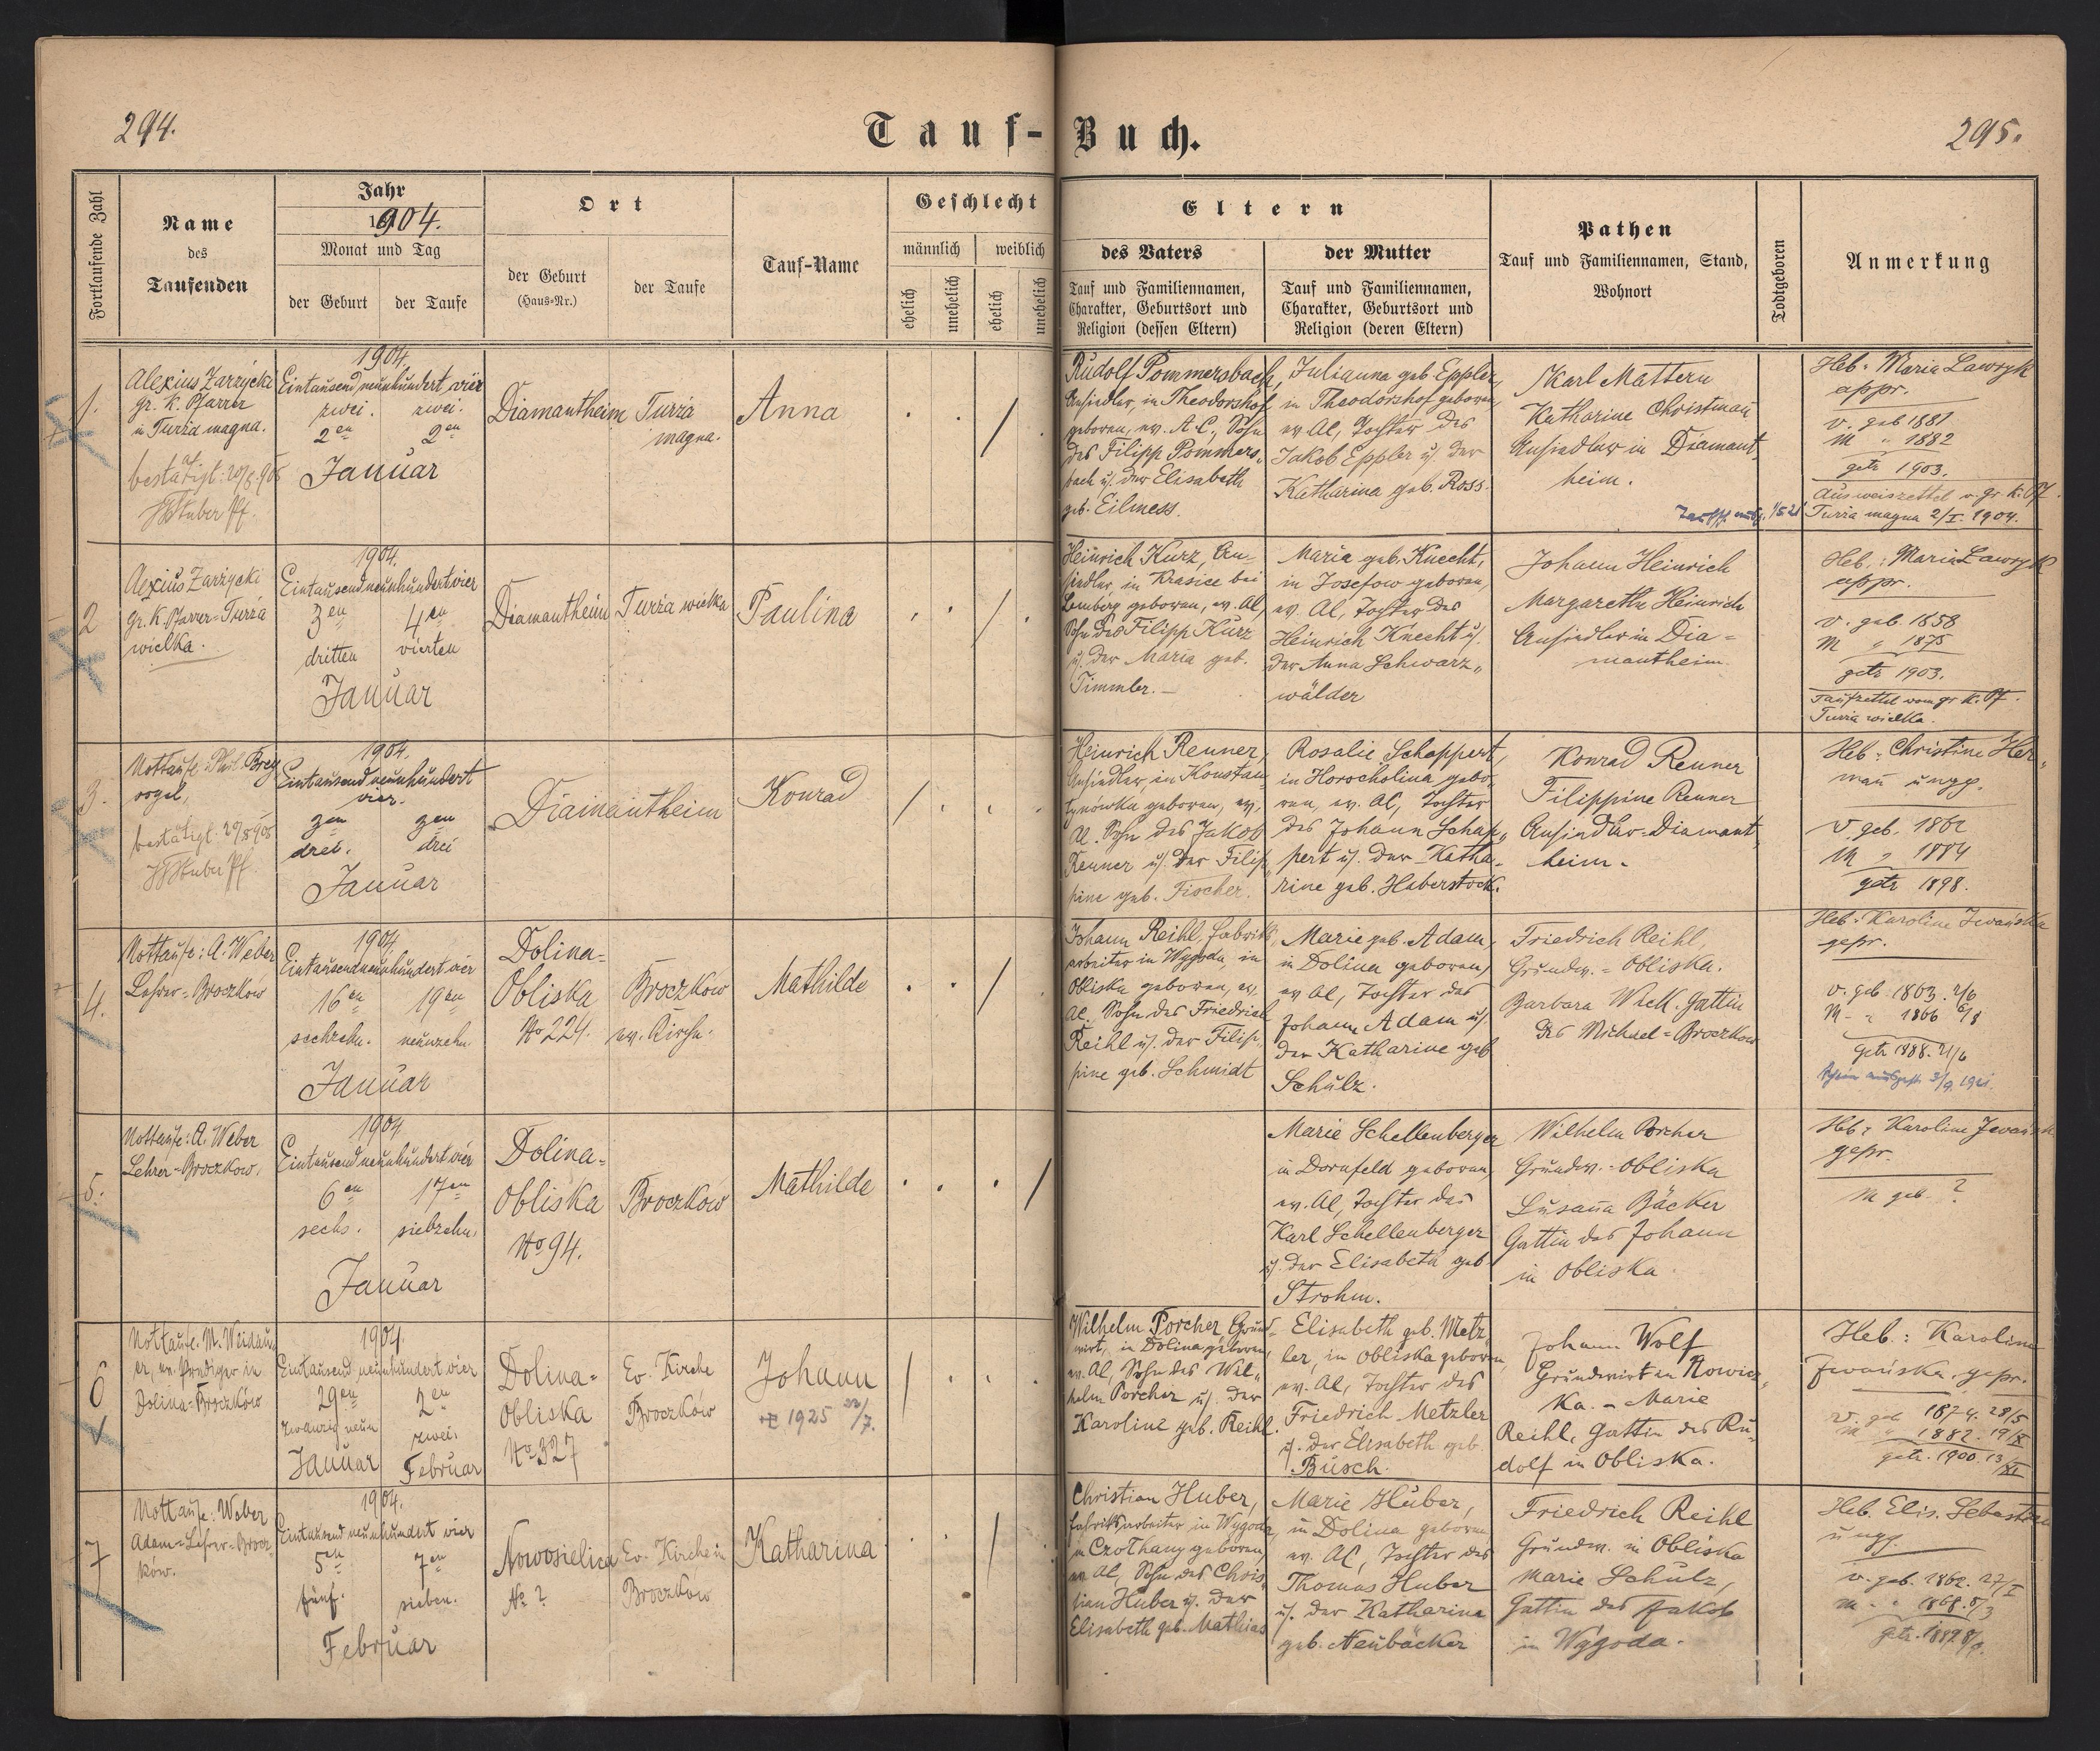 294.
Tauf-Buch.
295.
Fortlaufende Zahl
Name
des
Taufenden
Jahr
1904.
Monat und Tag
der Geburt
der Taufe
Ort
der Geburt
(Haus-Nr.)
der Taufe
Tauf-Name
Geschlecht
männlich
weiblich
ehelich
unehelich
ehelich
unehelich
Eltern
des Vaters
Tauf und Familiennamen,
Charakter, Geburtsort und
Religion (dessen Eltern)
der Mutter
Tauf und Familiennamen,
Charakter, Geburtsort und
Religion (deren Eltern)
Pathen
Tauf und Familiennamen, Stand,
Wohnort
Todtgeboren
Anmerkung
1.
Alexius Zarzycki
gr. K. Pfarrer
in Turza magna.
bestätigt:
Huber Pf.
1904.
Eintausend neunhundert vier
zwei. zwei.
2en 2en
Januar
Diamantheim
Turza
magna.
Anna
Rudolf Pommersbach,
Ansiedler, in Theodorshof
geboren, ev. A.C., Sohn
des Filipp Pommers-
bach u. der Elisabeth
geb. Eilmess.
Julianna geb. Eppler,
in Theodorshof geboren,
ev. AC, Tochter des
Jakob Eppler u. der
Katharina geb. Ross.
Karl Mattern
Katharine Christman
Ansiedler in Diamant-
heim.
Heb. Maria Lawryk
appr.
v. geb 1881
m " 1882
getr 1903.
Ausweiszettel v. gr. k. Pf.
Turza magna 2/I. 1904.
2
Alexius Zarzycki
gr. K. Pfarrer-Turza
wielka.
1904.
Eintausendneunhundertvier
3en 4en
dritten vierten
Januar
Diamantheim
Turza wielka
Paulina
Heinrich Kurz, An-
siedler, in Krasice bei
Lemberg geboren, ev. AC,
Sohn des Filipp Kurz
u. der Maria geb.
Timmler.
Maria geb. Knecht,
in Josefow geboren,
ev. AC, Tochter des
Heinrich Knecht u.
der Anna Schwarz-
wälder
Johann Heinrich
Margaretha Heinrich
Ansiedler in Dia-
mantheim.
Heb.: Maria Lawryk
appr.
v. geb. 1858
m " 1875
getr 1903.
Taufzettel vom gr. k. Pf.
Turza wielka.
3.
Nottaufe: Phil. Brey
vogel,
bestätigt:
Huber Pf.
1904.
Eintausend neunhundert
vier.
3en 3en
drei. drei
Januar
Diamantheim
Konrad
Heinrich Renner,
Ansiedler, in Konstan-
tynówka geboren, ev.
AC. Sohn des Jakob
Renner u. der Filip-
pine geb. Fischer.
Rosalie Schappert,
in Horocholina gebo-
ren, ev. AC, Tochter
des Johann Schap-
pert u. der Katha-
rine geb. Haberstock.
Konrad Renner
Filippine Renner
Ansiedler-Diamant-
heim.
Heb: Christine Her-
man ungp.
v. geb. 1862
m " 1884
getr 1898.
4.
Nottaufe: A. Weber
Lehrer-Broczkow
1904
Eintausendneunhundert vier
16en 19en
sechzehn. neunzehn
Januar
Dolina-
Obliska
No 224.
Broczkow
ev. Kirche.
Mathilde
Johann Reihl, Fabriks-
arbeiter in Wygoda, in
Obliska geboren, ev.
AC. Sohn des Friedrich
Reihl u. der Filip-
pine geb. Schmidt
Marie geb. Adam,
in Dolina geboren,
ev AC, Tochter des
Johann Adam u.
der Katharine geb
Schulz.
Friedrich Reihl,
Grundw. = Obliska.
Barbara Wick. Gattin
des Michael = Broczkow
Heb: Karoline Iwańska
gepr.
v. geb. 1863. 2/6
m - " 1866 6/8
getr 1888. 21/6
5.
Nottaufe: A. Weber
Lehrer-Broczkow.
1904
Eintausend neunhundert vier
6en 17en
sechs. siebzehn.
Januar
Dolina-
Obliska
No 94.
Broczkow
Mathilde
Marie Schellenberger
in Dornfeld geboren,
ev. AC, Tochter des
Karl Schellenberger
u. der Elisabeth geb.
Strohm.
Wilhelm Porcher
Grundw.-Obliska
Susana Bäcker
Gattin des Johann
in Obliska.
Heb: Karoline
gepr.
m geb. ?
6
Nottaufe. M. Weidau-
er, ev. Prediger in
Dolina-Broczków
1904.
Eintausend neunhundert vier
29en 2en
zwanzig neun zwei.
Januar Februar
Dolina-
Obliska
No 327
Ev. Kirche
Broczków
Johann
1925 22/7.
Wilhelm Porcher Grund-
wirt, in Dolina geboren,
ev. AC, Sohn des Wil-
helm Porcher u. der
Karoline geb. Reihl.
Elisabeth geb. Metz-
ler, in Obliska geboren,
ev. AC, Tochter des
Friedrich Metzler
u. der Elisabeth geb.
Busch.
Johann Wolf
Grundwirt in Nowic-
ka. - Marie
Reihl, Gattin des Ru-
dolf in Obliska.
Heb.: Karolina
Iwańska. gepr.
v. geb 1874. 28/5
m " 1882. 19/IX
getr. 1900. 13/XI
7
Nottaufe: Weber
Adam-Lehrer-Brocz-
ków.
1904.
Eintausend neunhundert vier
5en 7en
fünf. sieben.
Februar
Nowosielica
No ?
Ev. Kirche in
Broczkow
Katharina
Christian Huber,
Fabriksarbeiter in Wygoda,
in Czolhany geboren,
ev. AC, Sohn des Chris-
tian Huber u. der
Elisabeth geb. Mathias
Marie Huber,
in Dolina geboren,
ev. AC, Tochter des
Thomas Huber
u. der Katharina
geb. Neubäcker
Friedrich Reihl
Grundw. in Obliska
Marie Schulz,
Gattin des Jakob
in Wygoda.
Heb. Elis. Sebastian
ungp.
v. geb. 1862. 27/I
m " 1868. 5/3
getr. 1889